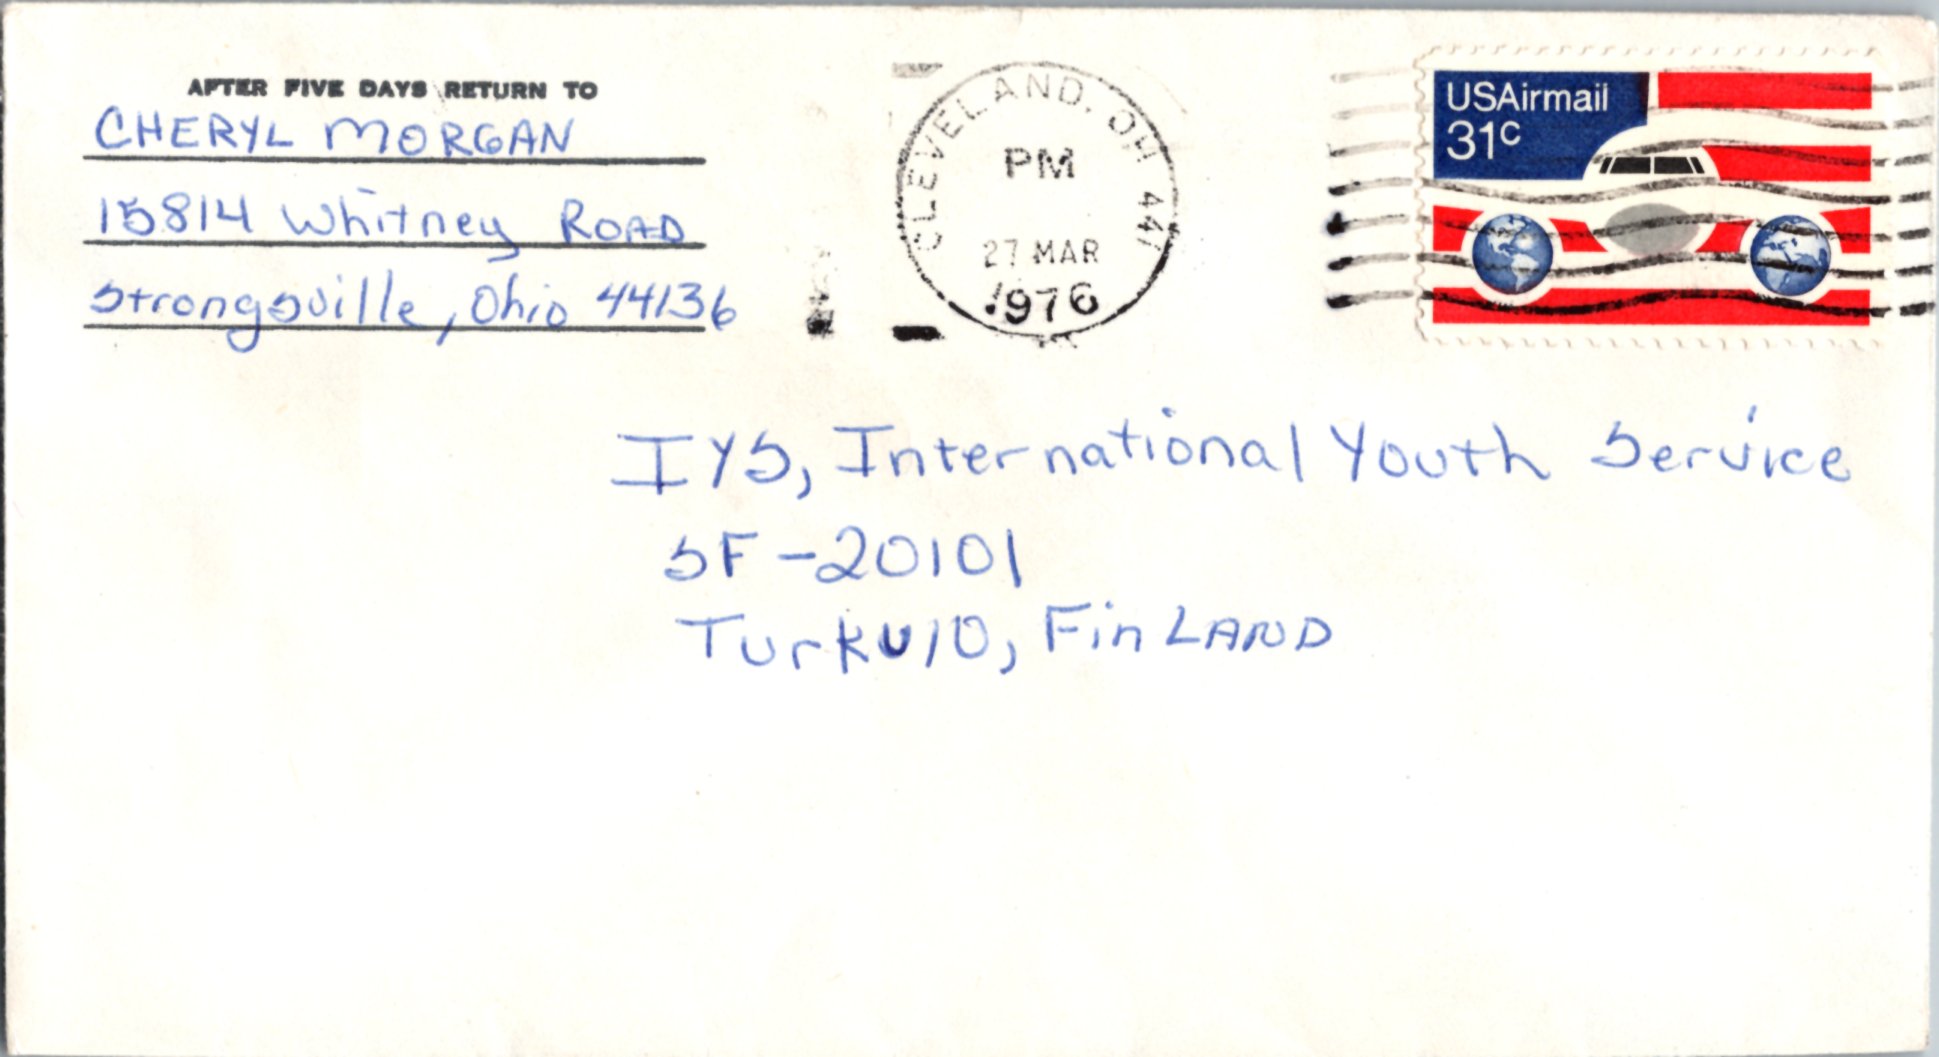 AFTER FIVE DAYS RETURN TO
CHERYL MORGAN
15814 Whitney ROAD
Strongsville, Ohio 44136
CLEVELAND, OH 441
PM
27 MAR
1976
USAirmail
31c
IYS, International Youth Service
SF-20101
Turku10, FinLAND